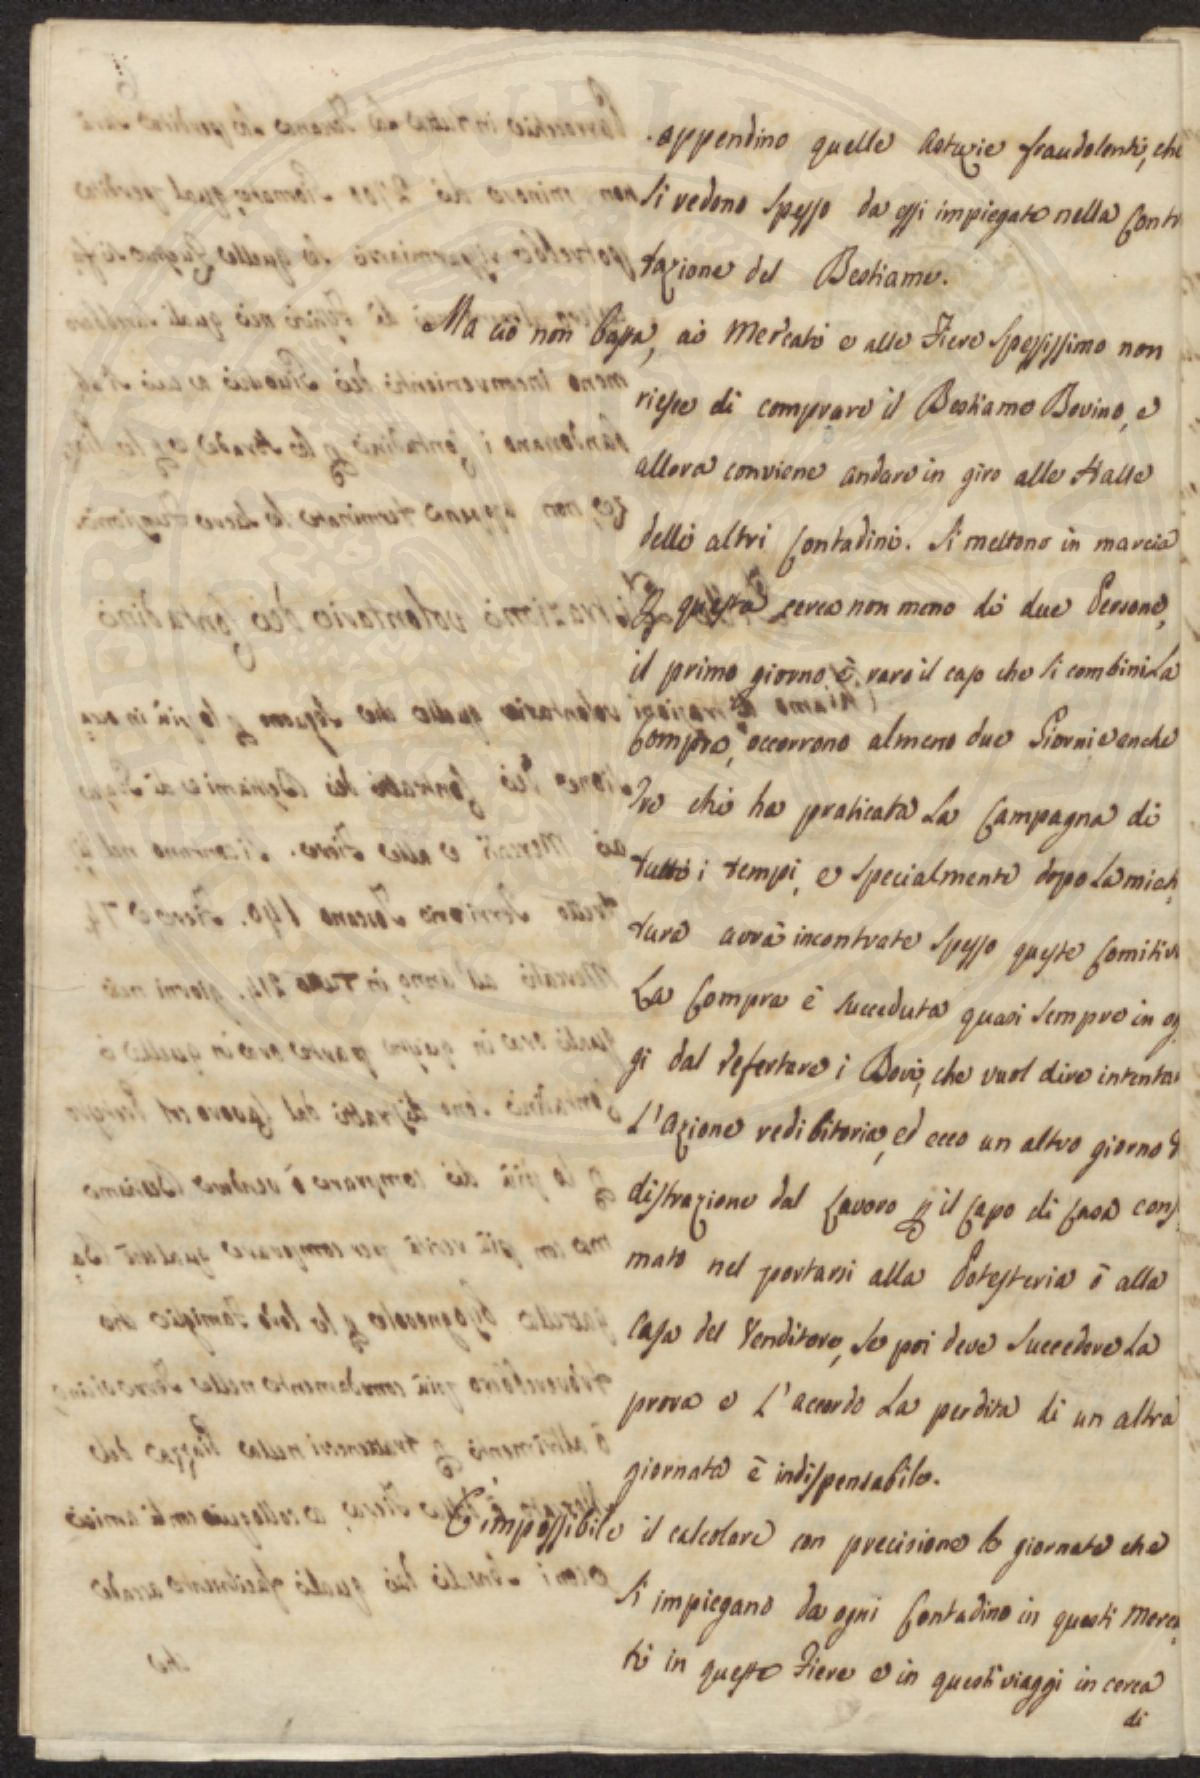 appendino quelle Astuzie fraudolenti, che
si vedono spesso da essi impiegate nella Cont
tazione del Bestiame.
Ma ciò non basta, ai Mercati e alle Fiere spessissimo non
riesce di comprare il Bestiame Bovino, e
allora conviene andare in giro alle Stalle
delli altri Contadini. Si mettono in marcia
p questa cerca non meno di due Persone,
il primo giorno è raro il caso che si combini La
Compra, occorrono almeno due Giorni e anche
Tre chi ha praticata La Campagna di
tutti i tempi, e specialmente dopo La mieti
tura avrà incontrate spesso queste Comitive
La Compra è succeduta quasi sempre in og
gi dal refertare i Bovi, che vuol dire intentar
L'Azione redibitoria, ed ecco un altro giorno d
distrazione dal Lavoro p il Capo di Casa consu
mato nel portarsi alla Potesteria ò alla
Casa del Venditore, se poi deve succedere La
prova e L'accordo La perdita di un altra
giornata è indispensabile.
È impossibile il calcolare con precisione le giornate che
si impiegano da ogni Contadino in questi Merca
ti in queste Fiere e in questi viaggi in cerca
di